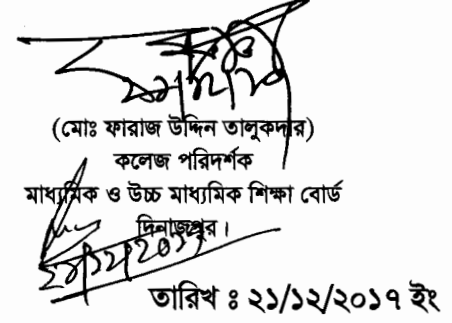 (মোঃ ফারাজ উদ্দিন তালুকদার)
কলেজ পরিদর্শক
মাধ্যমিক ও উচ্চ মাধ্যমিক শিক্ষা বোর্ড
দিনাজপুর।
তারিখ ঃ ২১/১২/২০১৭ ইং